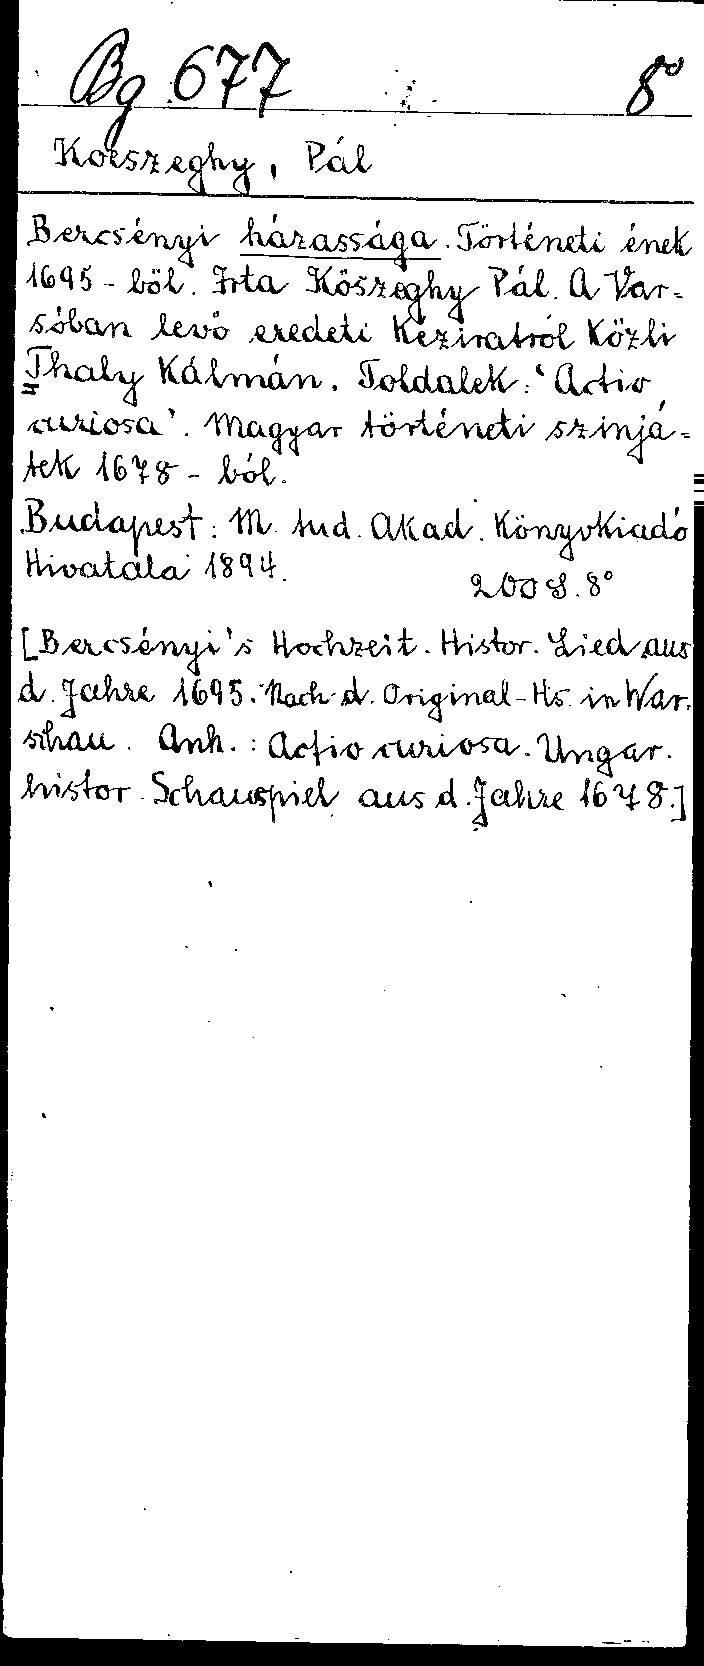 Bg 677 8°
Koeszeghy, Pál
Bercsényi házassága. Történeti ének
1695-böl. Irta Köszeghy Pál. A Var-
sóban levö eredeti Keziratról Közli
Thaly Kálmán. Toldalek: 'Actio
curiosa'. Magyar történeti szinjá-
tek 1678-ból.
Budapest: M. tud. Akad. Könyvkiadó
Hivatala 1894.
200 S. 8°
[Bercsényi's Hochzeit. Histor. Lied aus
d. Jahre 1695. Nach d. Original-Hs. in War-
schau. Anh.: Actio curiosa. Ungar.
histor. Schauspiel aus d. Jahre 1678.]